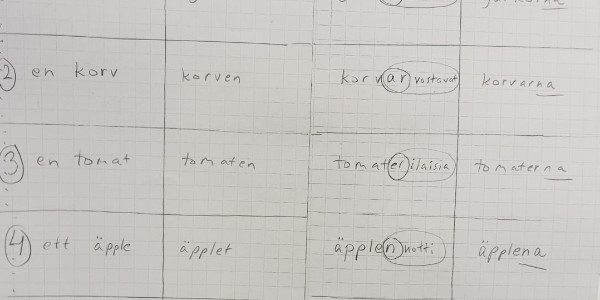 2 en korv korven korvar vastavat korvarna
3 en tomat tomaten tomater ilaisia tomaterna
4 ett äpple äpplet äpplen notti äpplena